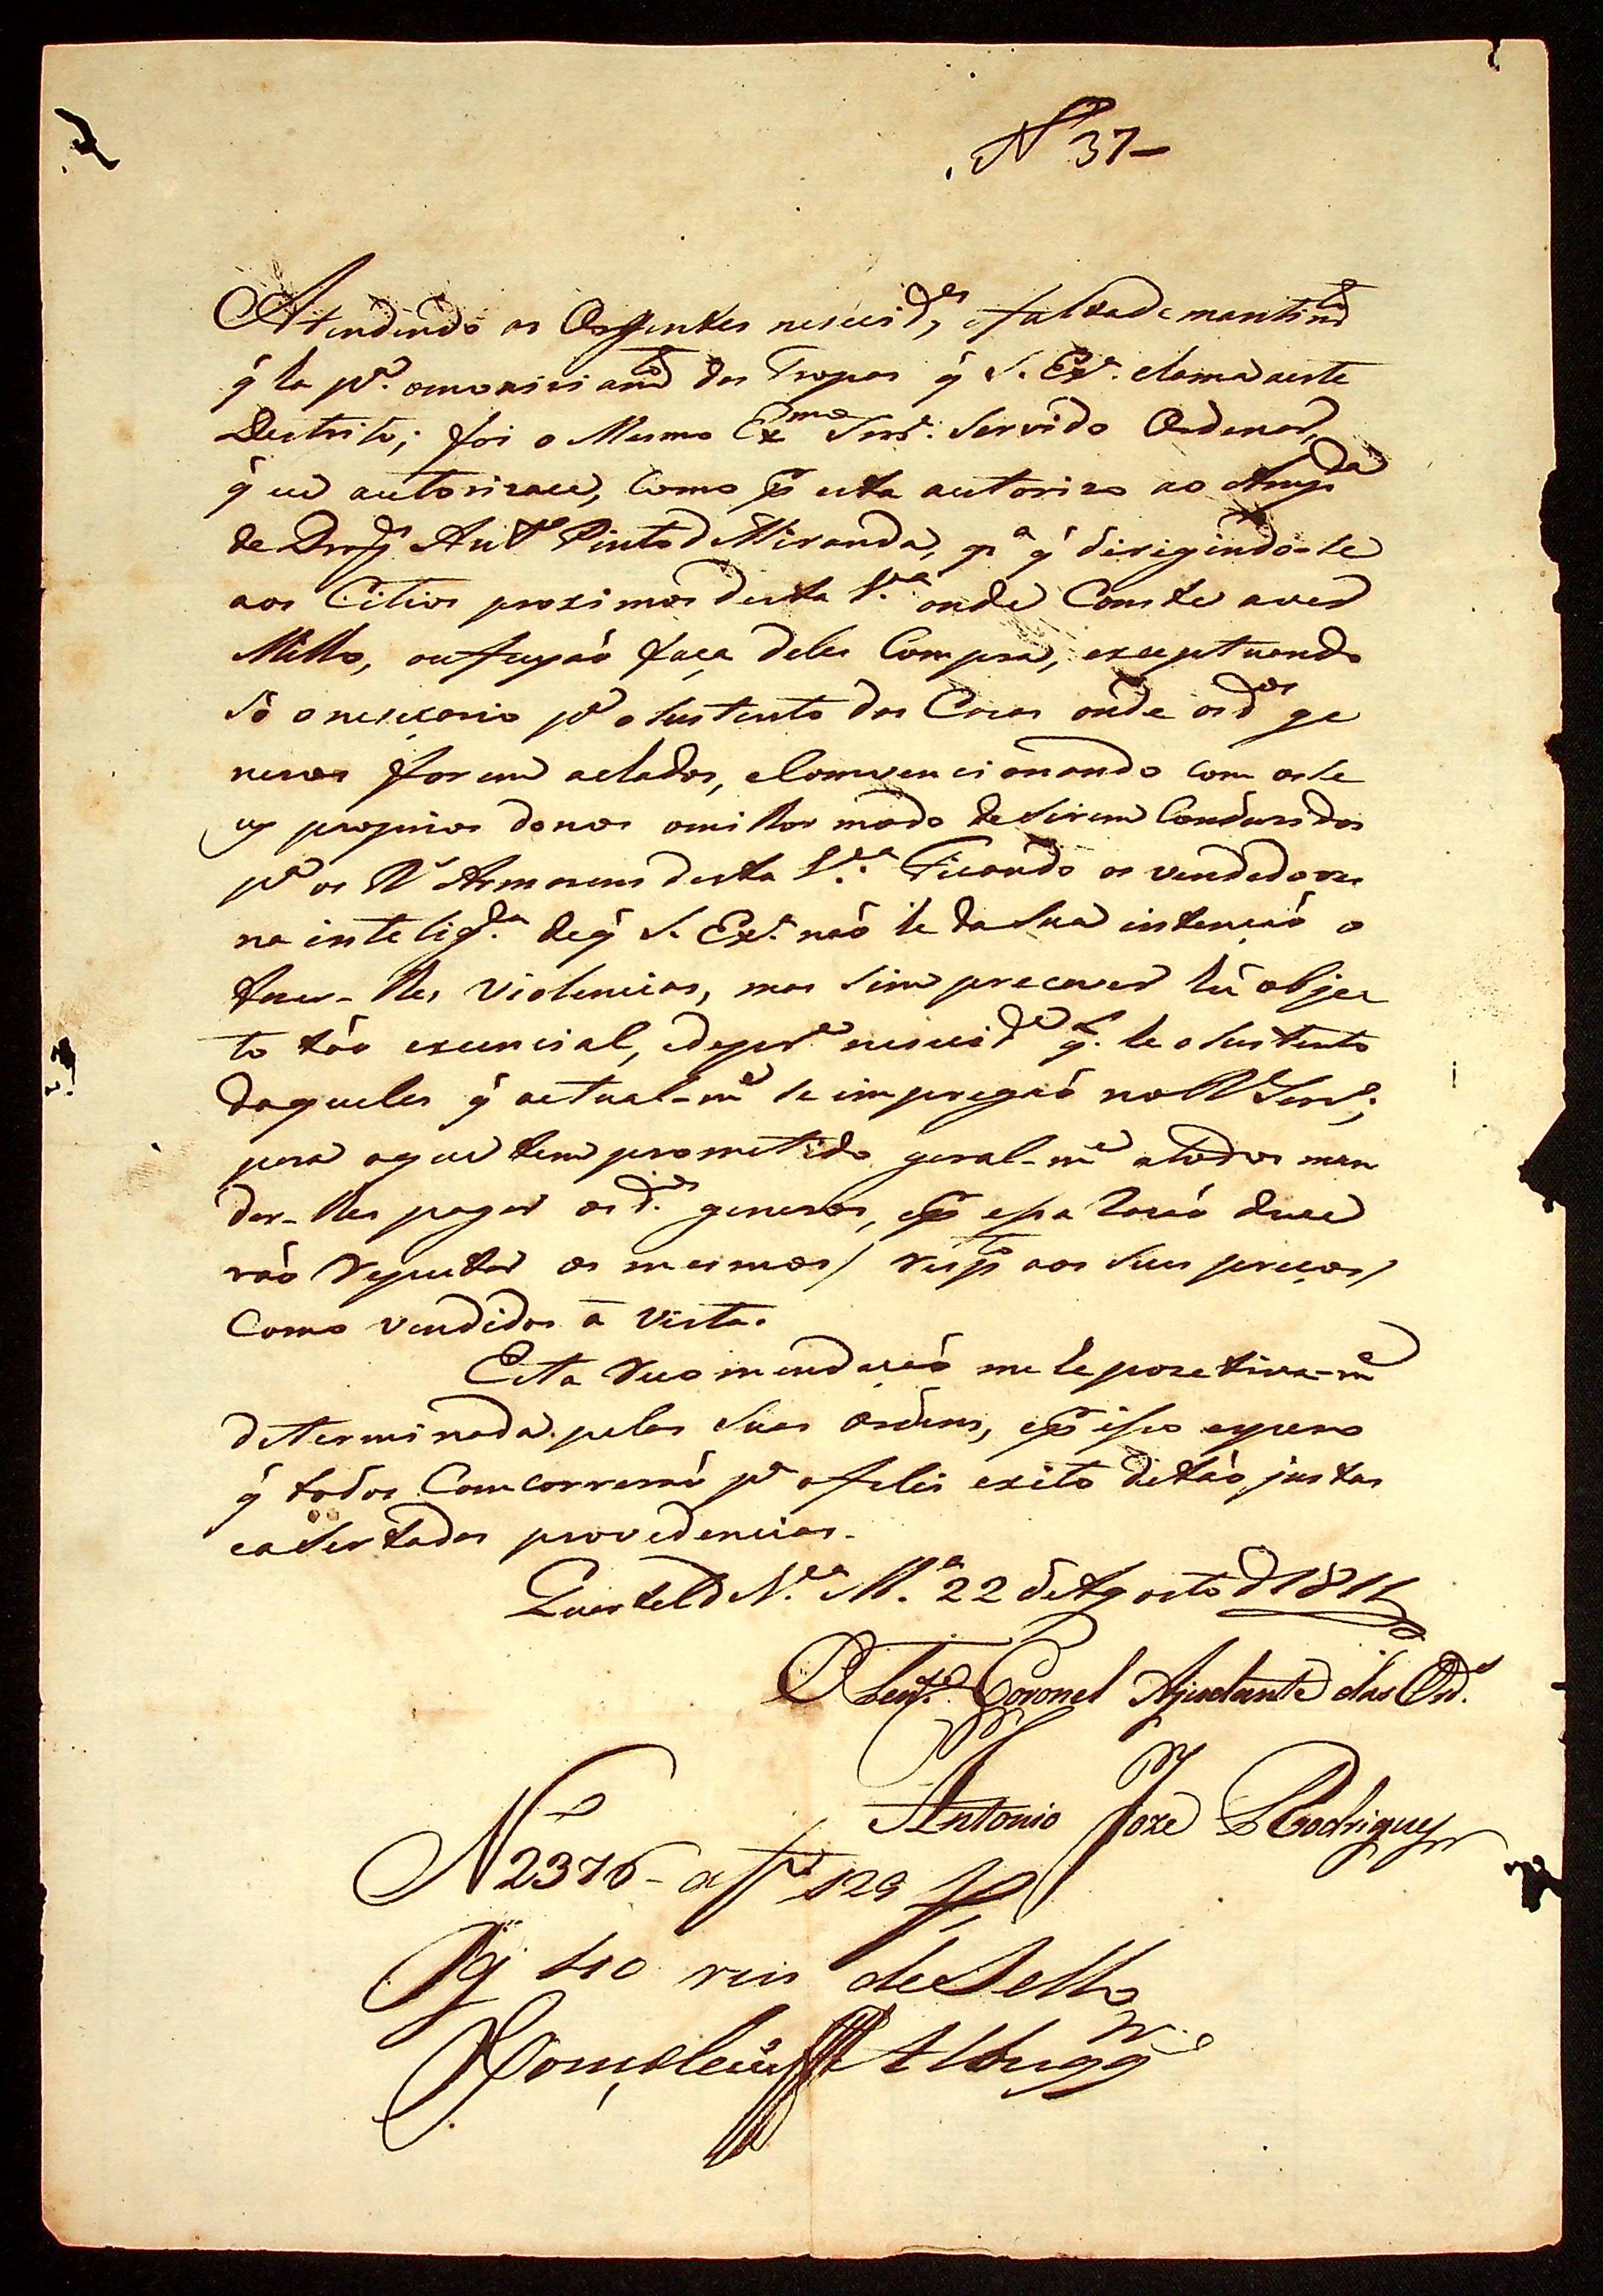 N 37-
Attendendo as Urgentes necesid.es, e falta de mantim.to
q̃ ha p.a o municiam.to das Tropas q̃ S. Ex.a chama a este
Destrito; foi o Mesmo Ex.mo Senr. Servido Ordenar,
q̃ eu autorizace, como p.r esta autorizo ao
de Drag.s Ant.o Pinto d Miranda, p.a q̃ dirigindo-se
aos Citios proximos desta V.a onde Conste aver
Milho, ou feyjaó faça deles Compra, exceptuando
só o nesecario p.a o Sustento das Cazas onde os d.os ge
neros forem achados, e Comvencionando com os se
us proprios donos o milhor modo de Serem Conduzidos
p.a os R.s Armazens desta V.a Ficando os vendedores
na intelig.a de q̃ S. Ex.a naó he da Sua intençaó o
fazer-lhes Violencias, mas Sim precaver hũ objec
to táo exencial, e de p.ra necesid.e q.l he o Sustento
daqueles q̃ actual-m.e se impregaó no R. Serv.o;
para o que tem prometido geral-m.e a todos man
dar-lhes pagar os d.os generos, e p.r essa Razaó deve
ráo Reputar os mesmos / resp.to aos Seus preços /
Como vendidos à Vista.
Esta Recomendaçaó me he pozetiva-m.e
determinada pelas Suas Ordens, e p.r isso espero
q̃ todos Comcorreráó p.a o feliz exito de táo justas
e asertadas providencias.
Quartel d N.a M.a 22 de Agosto d 1811
O Ten.te Coronel Ajudante das Ord.s
Antonio Joze Rodrigues
N 2376 - a f 129
Pg 40 reis de Sello